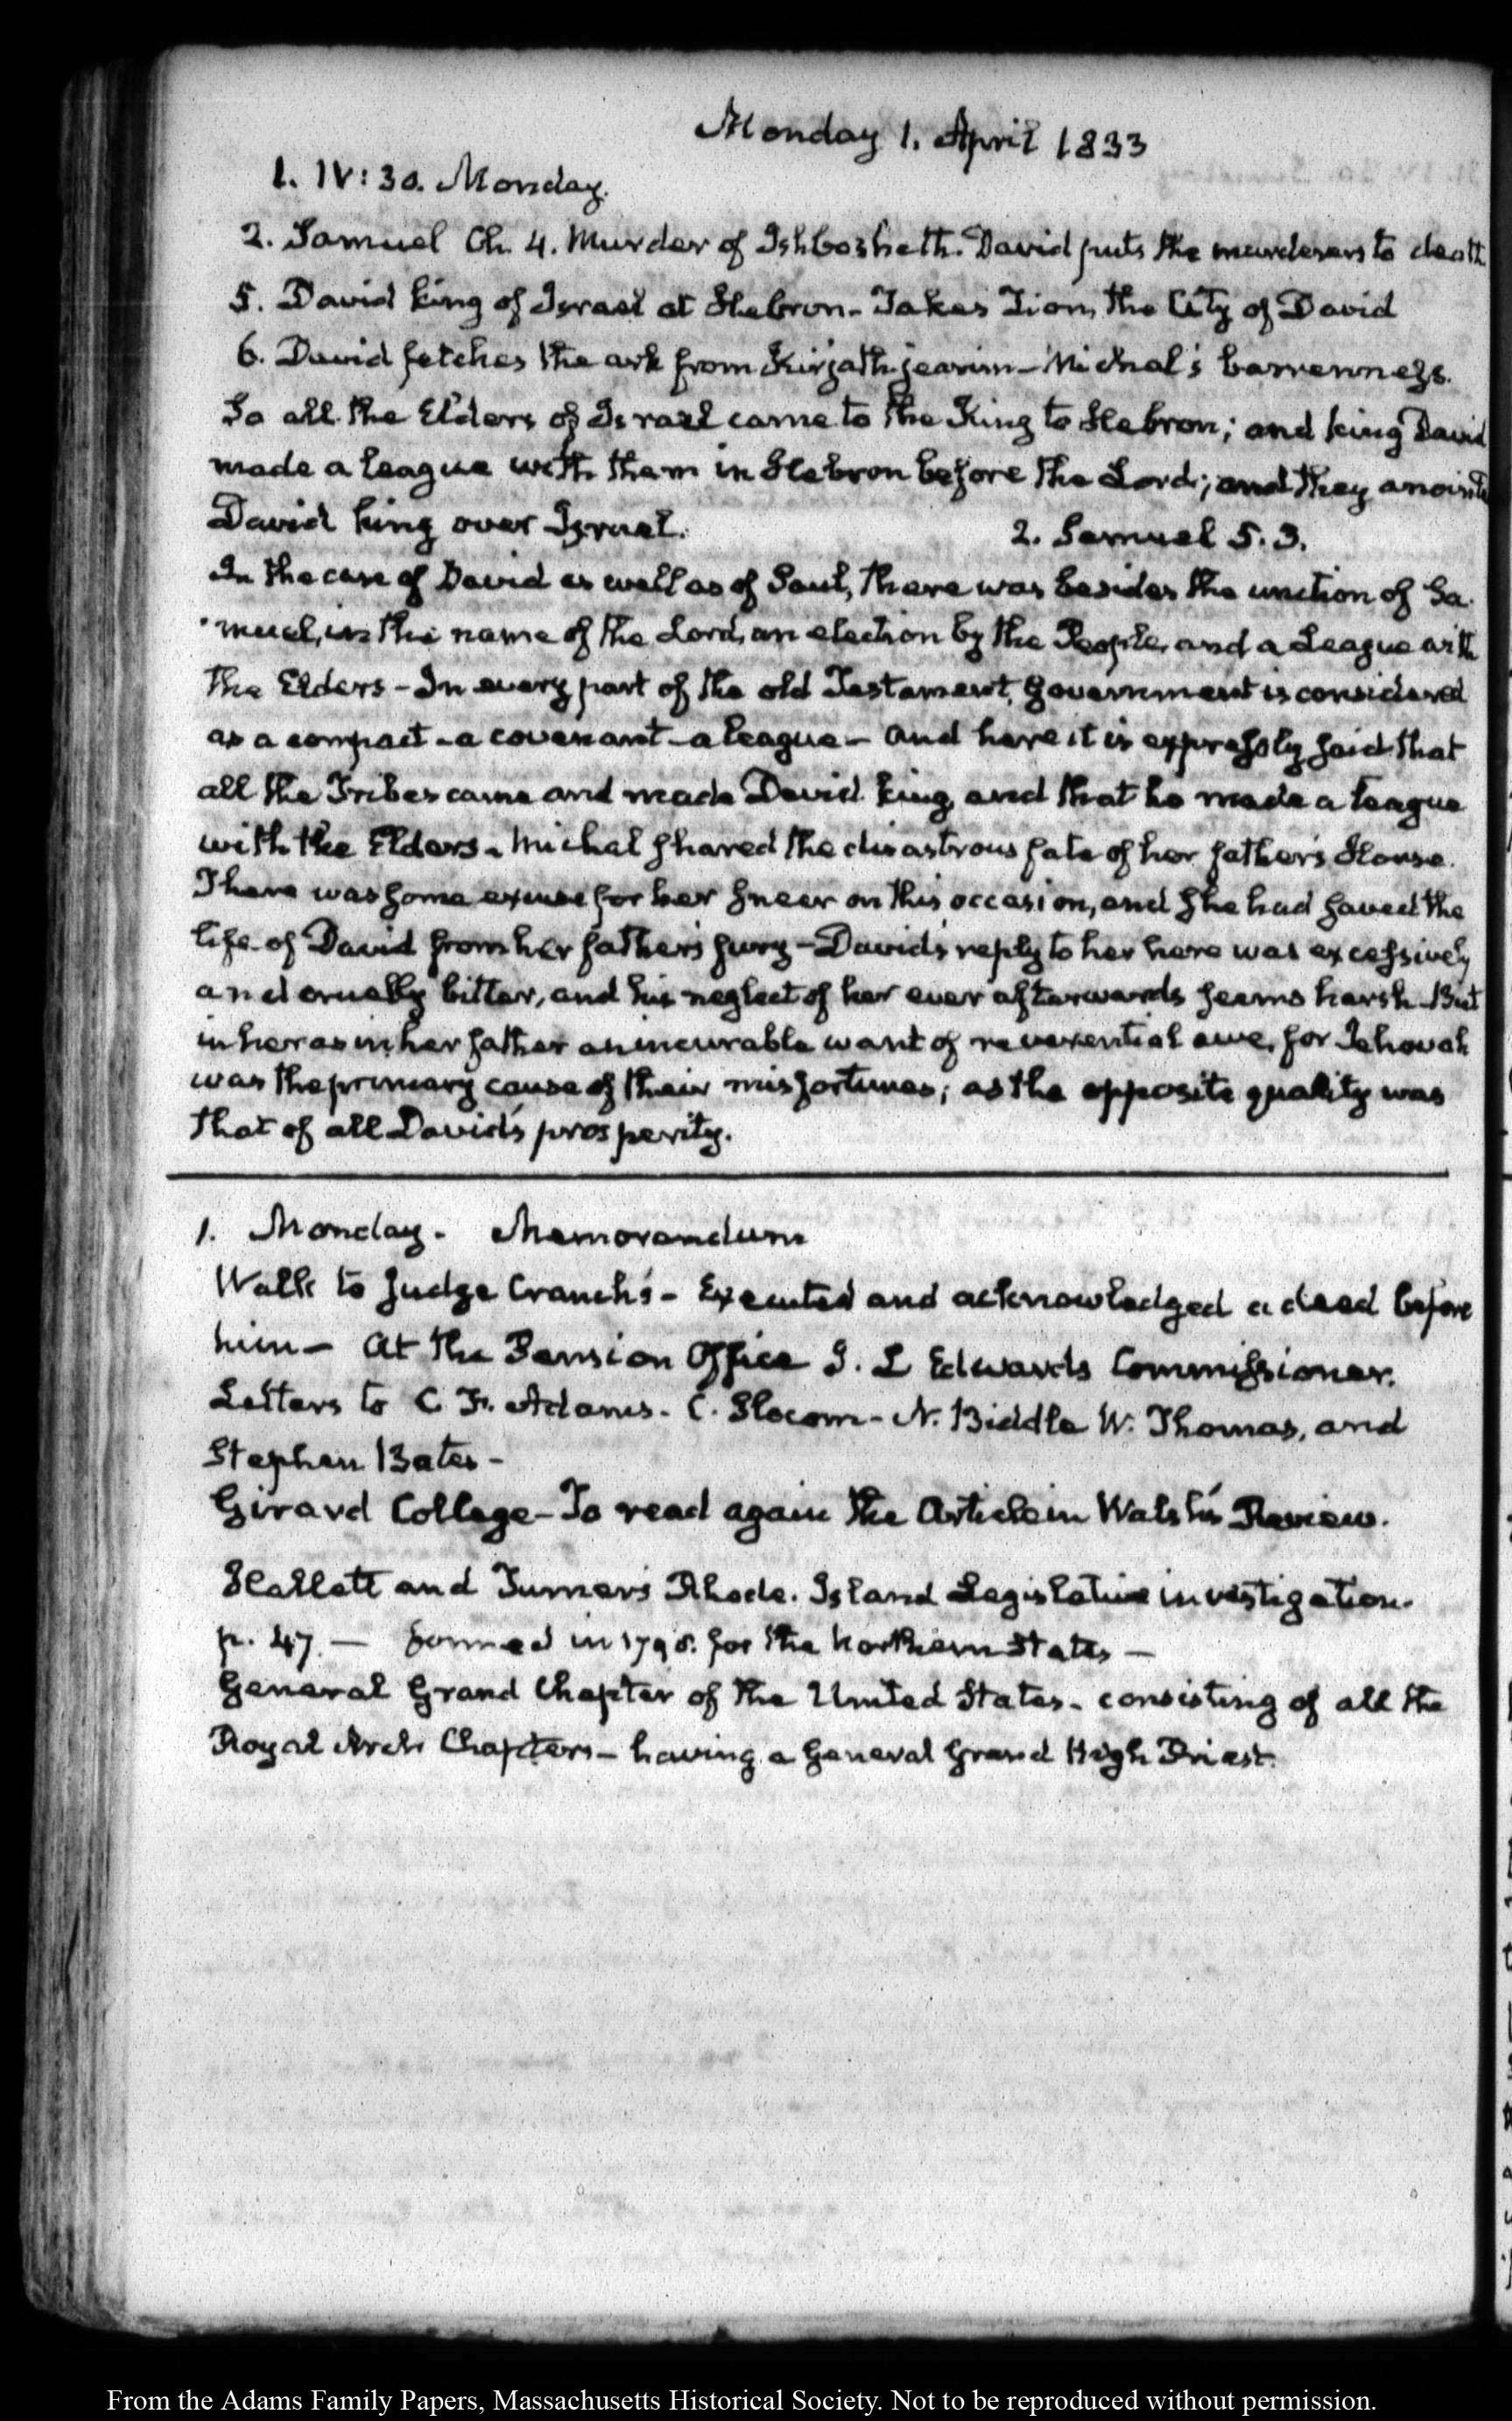 Monday 1. April 1833
1. IV: 30. Monday.
2. Samuel Ch. 4. Murder of Ishbosheth. David puts the murderers to death
5. David king of Israel at Hebron - Takes Zion, the City of David
6. David fetches the ark from Kirjath-jearim - Michal's barrenness.
So all the Elders of Israel came to the King to Hebron; and king David
made a league with them in Hebron before the Lord; and they anointed
David king over Israel. 2. Samuel 5. 3.
In the case of David as well as of Saul, there was besides the unction of Sa-
muel, in the name of the Lord, an election by the People, and a League with
the Elders - In every part of the old Testament, government is considered
as a compact - a covenant - a league - and here it is expressly said that
all the Tribes came and made David king, and that he made a league
with the Elders - Michal shared the disastrous fate of her father's House.
There was some excuse for her sneer on this occasion, and she had saved the
life of David from her father's fury - David's reply to her here was excessively
and cruelly bitter, and his neglect of her ever afterwards seems harsh - But
in her as in her father an incurable want of reverential awe, for Jehovah
was the primary cause of their misfortunes; as the opposite quality was
that of all David's prosperity.
1. Monday. Memorandum
Walk to Judge Cranch's - Executed and acknowledged a deed before
him - At the Pension Office J. L Edwards Commissioner.
Letters to C. F. Adams - C. Slocom - N. Biddle W. Thomas, and
Stephen Bates -
Girard College - To read again the Article in Walsh's Review.
Hallett and Turner's Rhode. Island Legislative investigation.
p. 47. - formed in 1798. for the Northern States -
General Grand Chapter of the United States - consisting of all the
Royal Arch Chapters - having a General Grand High Priest.
From the Adams Family Papers, Massachusetts Historical Society. Not to be reproduced without permission.